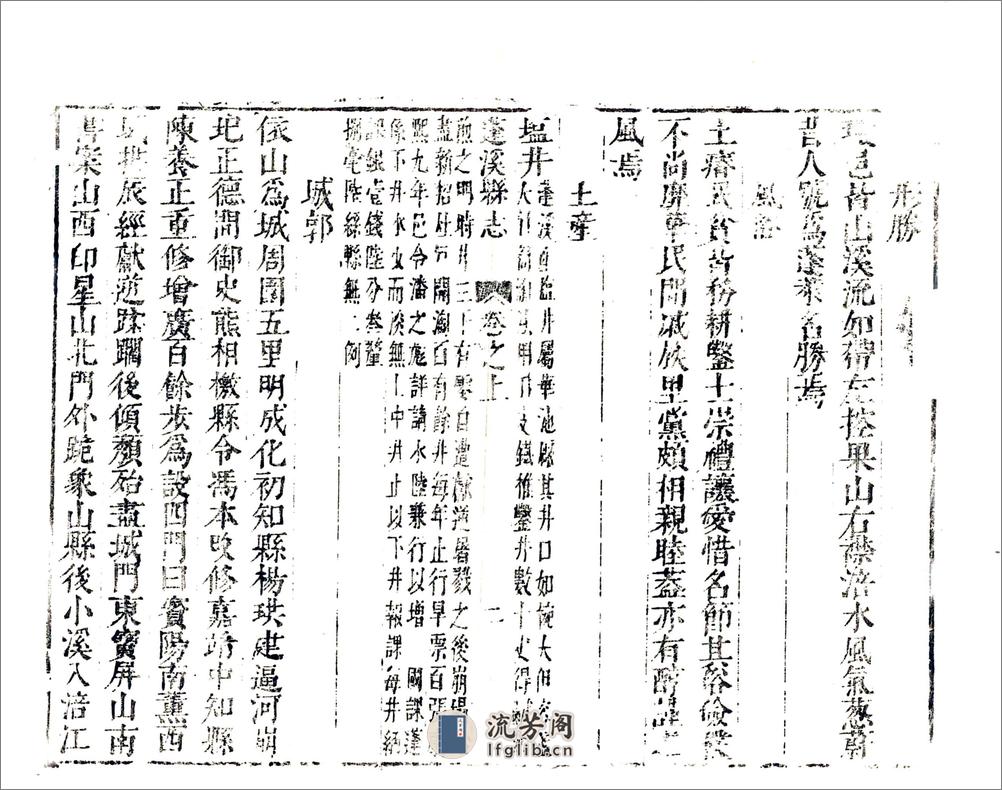 形勝
邑皆山溪流如帶左控果山右襟涪水風氣葱蔚
昔人號爲蓬萊名勝焉
風俗
土瘠民貧皆務耕鑿士崇禮讓愛惜名節其俗儉樸
不尚靡華民間戚族里黨頗相親睦葢亦有醇謹之
風焉
土產
塩井
蓬溪有塩井屬華池縣其井口如椀大但
明用鐵椎鑿井數十丈得
蓬溪縣志 卷之上 二
煎之明時井三千有零自遭獻逆暑毀之後崩塌
盡新招灶戶開淘百有餘井每年止行旱票百張
熙九年邑令潘之彪詳請水陸兼行以增 國課蓬
係下井水少而淡無上中井止以下井報課每井納
課銀壹錢陸分叁釐
捌毫陸絲縣無二例
城郭
依山爲城周圍五里明成化初知縣楊珙建逼河崩
圯正德間御史熊相檄縣令馮本改修嘉靖中知縣
陳養正重修增廣百餘步爲設四門曰賓陽南薰西
城拱辰經獻逆蹂躝後傾頹殆盡城門東賓屏山南
書案山西印星山北門外跪象山縣後小溪入涪江
流芳阁
lfglib.com